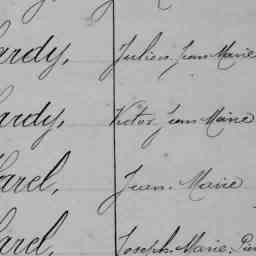 ardy, Julien Jean Marie
ardy, Victor Jean Marie
arel, Jean Marie
arel, Joseph Marie Pie